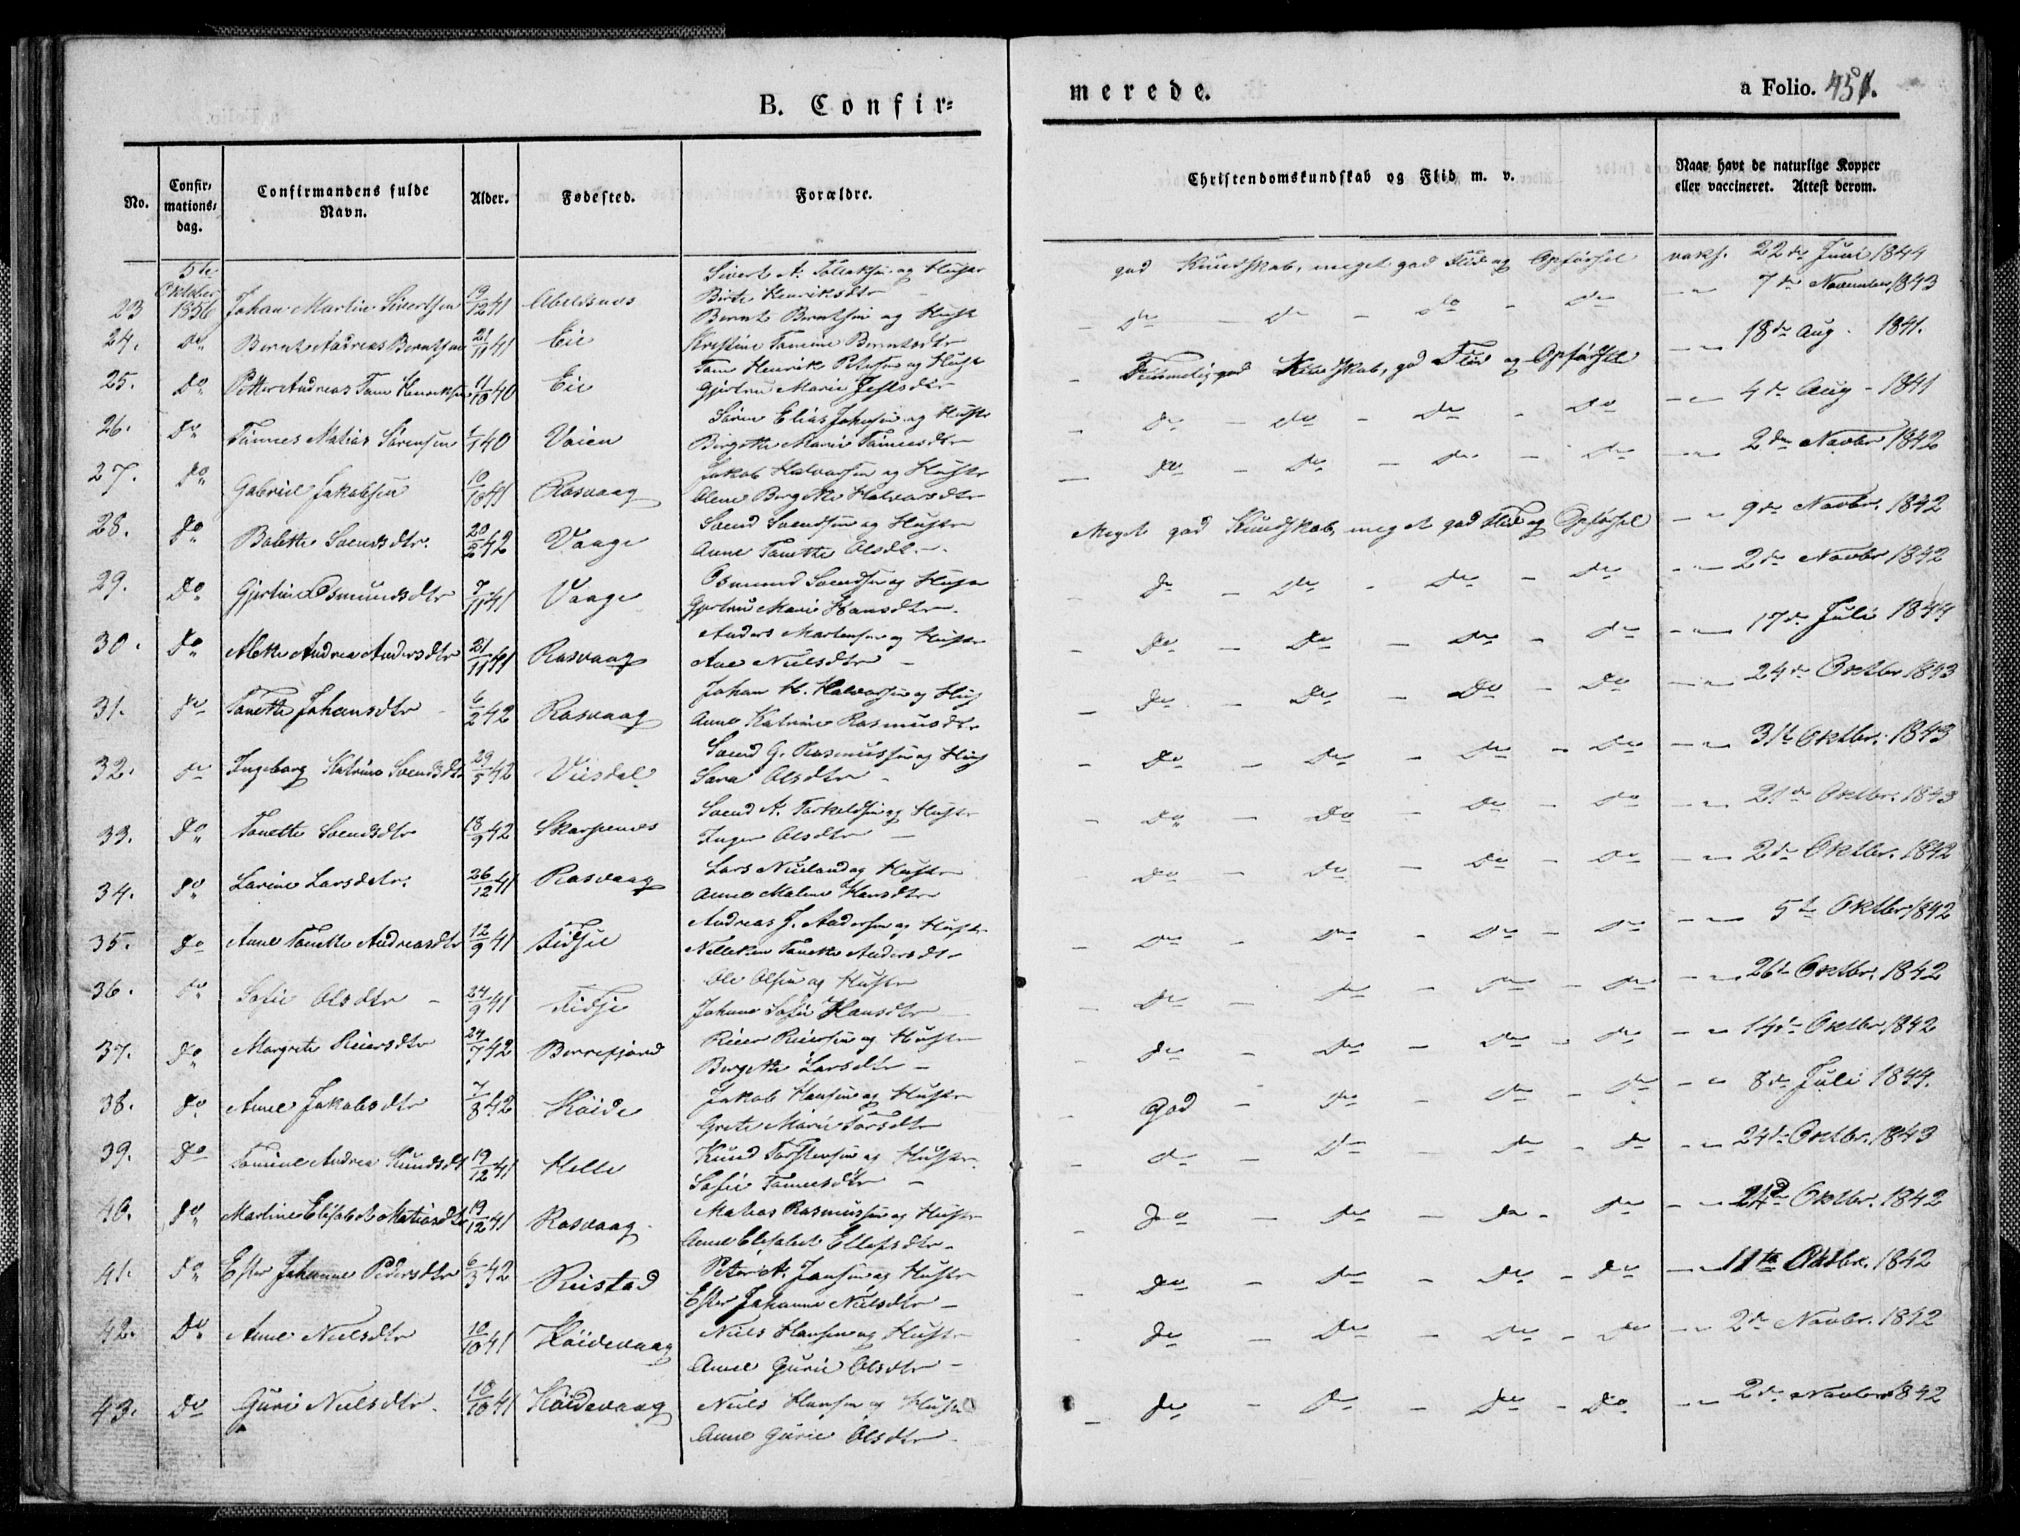 B. Confir=
merede.
a Folio. 451.
No.
Confir-
mations-
dag.
Confirmandens fulde
Navn.
Alder.
Fødested.
Forældre.
Christendomskundskab og Flid m. v.
Naar havt de naturlige Kopper
eller vaccineret. Attest derom.
5te
Oktober
1856
Sivert A. Tollaksen og Hustr
23 Johan Martin Sivertsen 19/12 41 Abelsnes Birte Henriksdtr
god Kundskab, meget god Flid og Opførsel vaks. 22de Juni 1844
24. Do Bernt Andreas Berntsen 21/11 41 Eie Bernt Berntsen og Hustr
Kristine Tomine Berntsdtr
Do Do Do Do 7de November 1843
25. Do Petter Andreas Tom Henriksen 40 Eie Tom Henrik Petersen og Hust
Gjertru Marie Jensdtr
Temmelig god Kundskab, god Flid og Opførsel 18de Aug. 1841.
26. Do Tønnes Matias Sørensen 40 Vaien Søren Elias Johnsen og Hustr
Bergette Marie Tønnesdtr
Do Do Do Do 4de Aug 1841
27. Do Gabriel Jakobsen 10/10 41 Rasvaag Jakob Halvorsen og Hustr
Olene Bergitte Halvorsdtr
Do Do Do Do 2den Novbr 1842
28. Do Bolette Svendsdtr. 20/2 42 Vaage Svend Svendsen og Hustr
Anne Tonette Olsdt.
Meget god Kundskab, meget god Flid og Opførsel 9de Novbr. 1842
29. Do Gjertine Osmundsdtr 7/11 41 Vaage Osmund Svendsen og Hustr
Gjertru Marie Hansdtr
Do Do Do Do 2de Novbr 1842
30. Do Alette Andrea Andersdtr 21/11 41 Rasvaag Anders Mortensen og Hustr
Ane Nielsdtr
Do Do Do Do 17de Juli 1844
31. Do Tonette Johansdtr 6/2 42 Rasvaag Johan H. Halvorsen og Hus
Anne Katrine Rasmusdt.
Do Do Do Do 24de Oktbr 1843
32. Do Ingeborg Katrine Svendsdt 29/5 42 Viisdal Svend G. Rasmussen og Hus
Sara Olsdtr
Do Do Do Do 31te Oktbr. 1843
33. Do Tonette Svendsdtr 18/9 42 Skarpenes Svend A. Torkeldsen og Hustr
Inger Olsdtr
Do Do Do Do 21de Oktbr. 1843
34. Do Larine Larsdatr. 26/12 41 Rasvaag Lars Nieland og Hustr
Anne Malene Hansdtr
Do Do Do Do 2de Oktbr. 1842
35. Do Anne Tonette Andreasdtr 12/9 41 Fidsel Andreas J. Andersen og Hustr
Nilleken Tonette Andersdt
Do Do Do Do 5te Oktbr 1842
36. Do Sofie Olsdtr 24/9 41 Fidsje Ole Olsen og Hustr
Johanne Sofie Hansdtr
Do Do Do Do 26de Oktbr. 1842
37. Do Margrete Reiersdtr 24/7 42 Borrefjord Reier Reiersen og Hustr
Bergette Larsdtr
Do Do Do Do 14de Oktbr 1842
38. Do Anne Jakobsdtr 7/8 42 Høide Jakob Hansen og Hustr
Grete Marie Torsdtr
god Do Do Do 8de Juli 1844.
39. Do Tomine Andrea Knudsdt 19/12 41 Helle Knud Torstensen og Hustr.
Sofie Tønnesdtr
Do Do Do Do 24de Oktbr. 1843
40. Do Martine Elisabet Matiasdt 19/12 41 Rasvaag Matias Rasmussen og Hustr
Anne Elisabet Ellefsdtr
Do Do Do Do Oktbr. 1842
41. Do Ester Johanne Pedersdtr 6/3 42 Ristad Peter A. Jansen og Hustr
Ester Johanne Nielsdtr
Do Do Do Do 11te Oktbr. 1842
42. Do Anne Nielsdtr 10/10 41 Høidevaag Niels Hansen og Hustr
Anne Gurie Olsdtr
Do Do Do Do 2de Novbr. 1842
43. Do Guri Nielsdtr. 10/10 41 Høidevaag Niels Hansen og Hustr
Anne Gurie Olsdtr
Do Do Do Do 2de Novber 1842